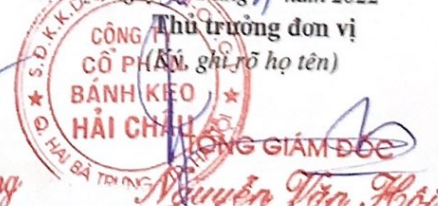 năm 2022
Thủ trưởng đơn vị
(Ký, ghi rõ họ tên)
S.Đ.K.K.D
CÔNG TY
CỔ PHẦN
BÁNH KẸO
HẢI CHÂU
Q. HAI BÀ TRƯNG
TỔNG GIÁM ĐỐC
Nguyễn Văn Hội